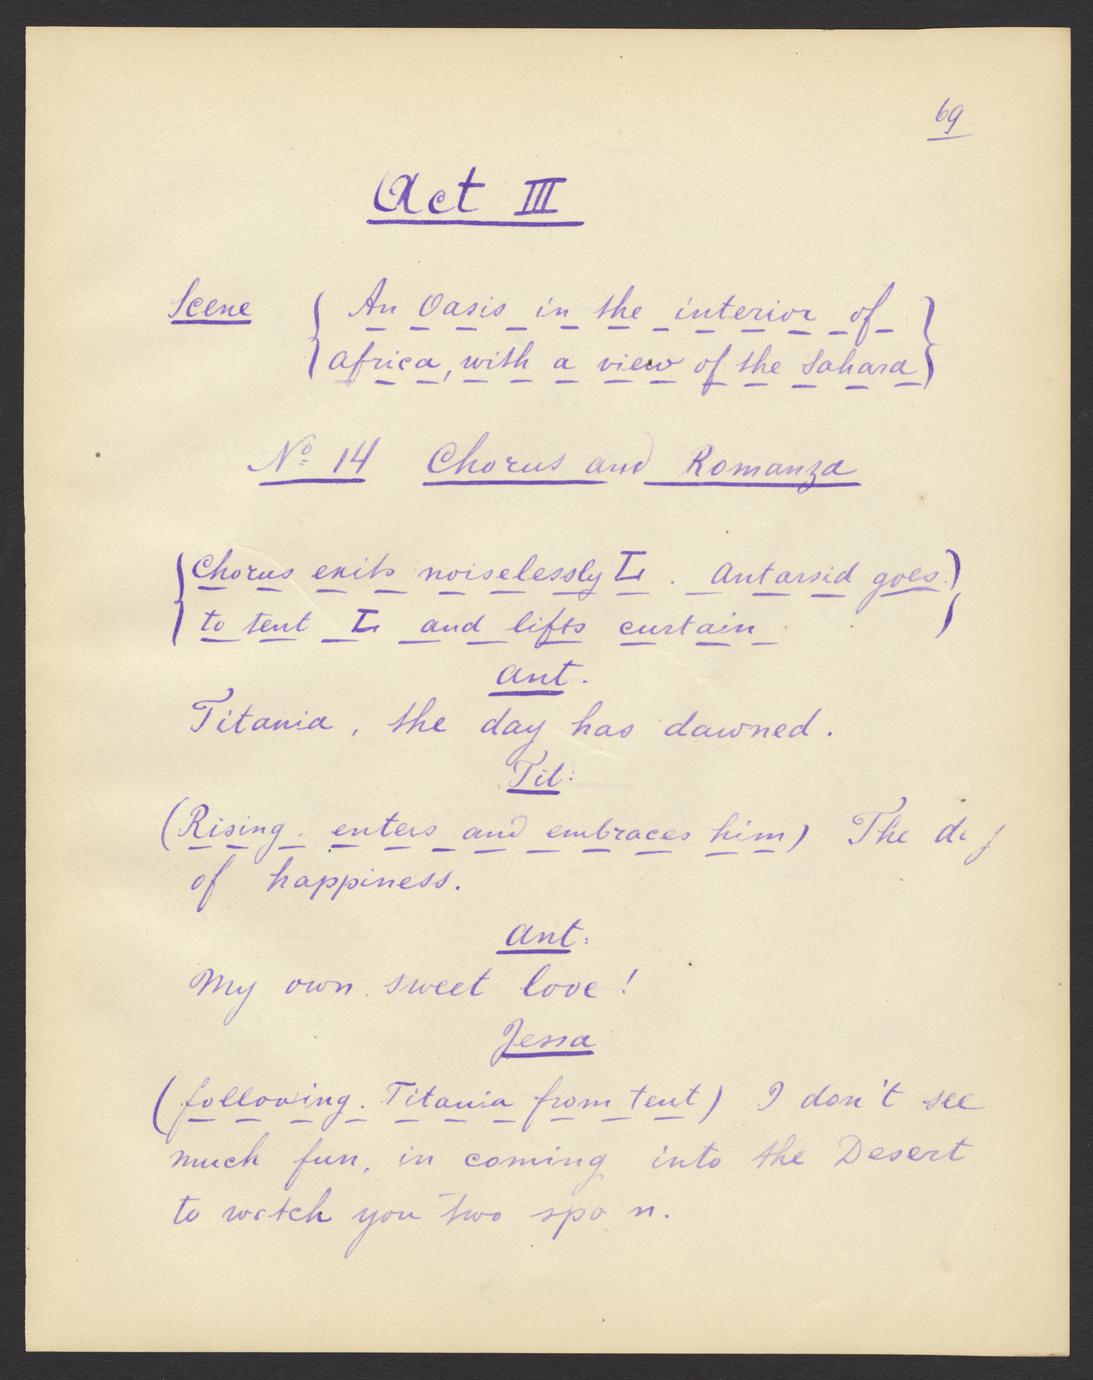 69
Act III
Scene { An Oasis in the interior of
Africa, with a view of the Sahara }
No 14 Chorus and Romanza
{ Chorus exits noiselessly L. Antarsid goes
to tent L and lifts curtain )
Ant.
Titania, the day has dawned.
Tit:
(Rising. enters and embraces him) The day
of happiness.
Ant:
My own sweet love!
Jessa
(following. Titania from tent) I don't see
much fun, in coming into the Desert
to watch you two